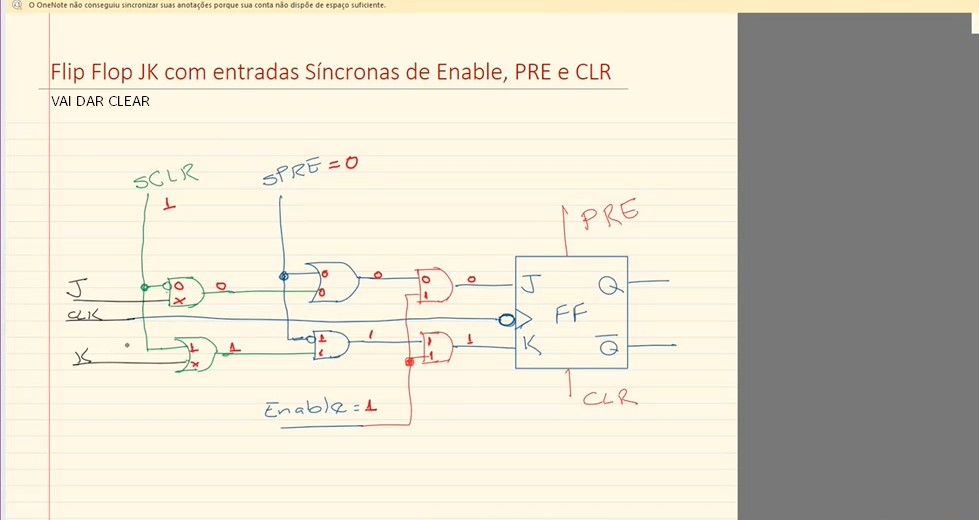 O OneNote não conseguiu sincronizar suas anotações porque sua conta não dispõe de espaço suficiente.
Flip Flop JK com entradas Síncronas de Enable, PRE e CLR
VAI DAR CLEAR
SCLR
1
SPRE = 0
PRE
J
0
x
0
0
0
0
0
1
0
J
Q
CLK
FF
K
1
x
1
1
1
1
1
1
1
K
Q̅
Enable = 1
CLR